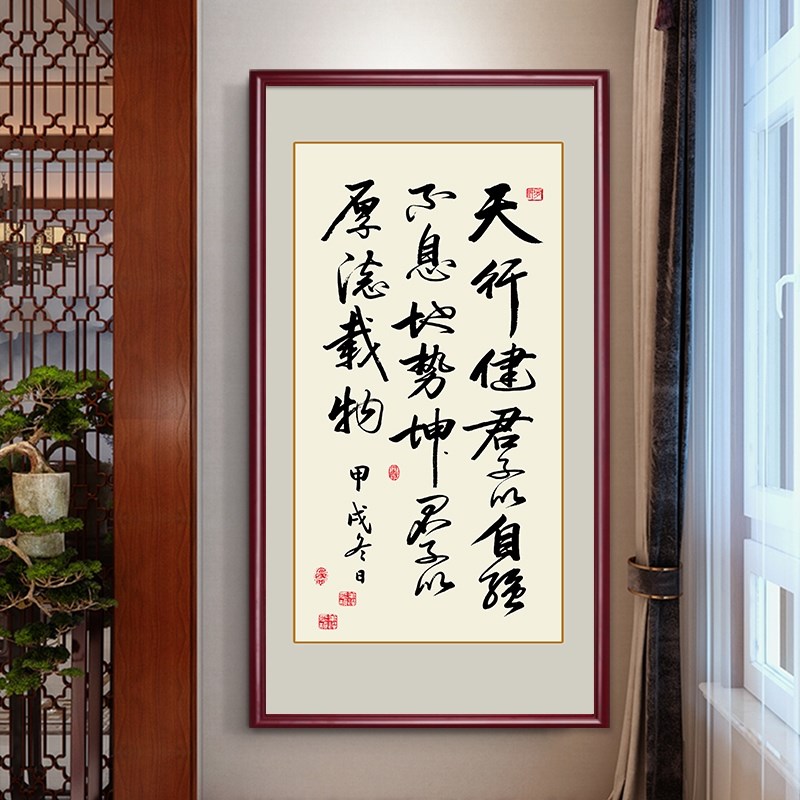 天行健君子以自强
不息地势坤君子以
厚德载物
甲戌冬日